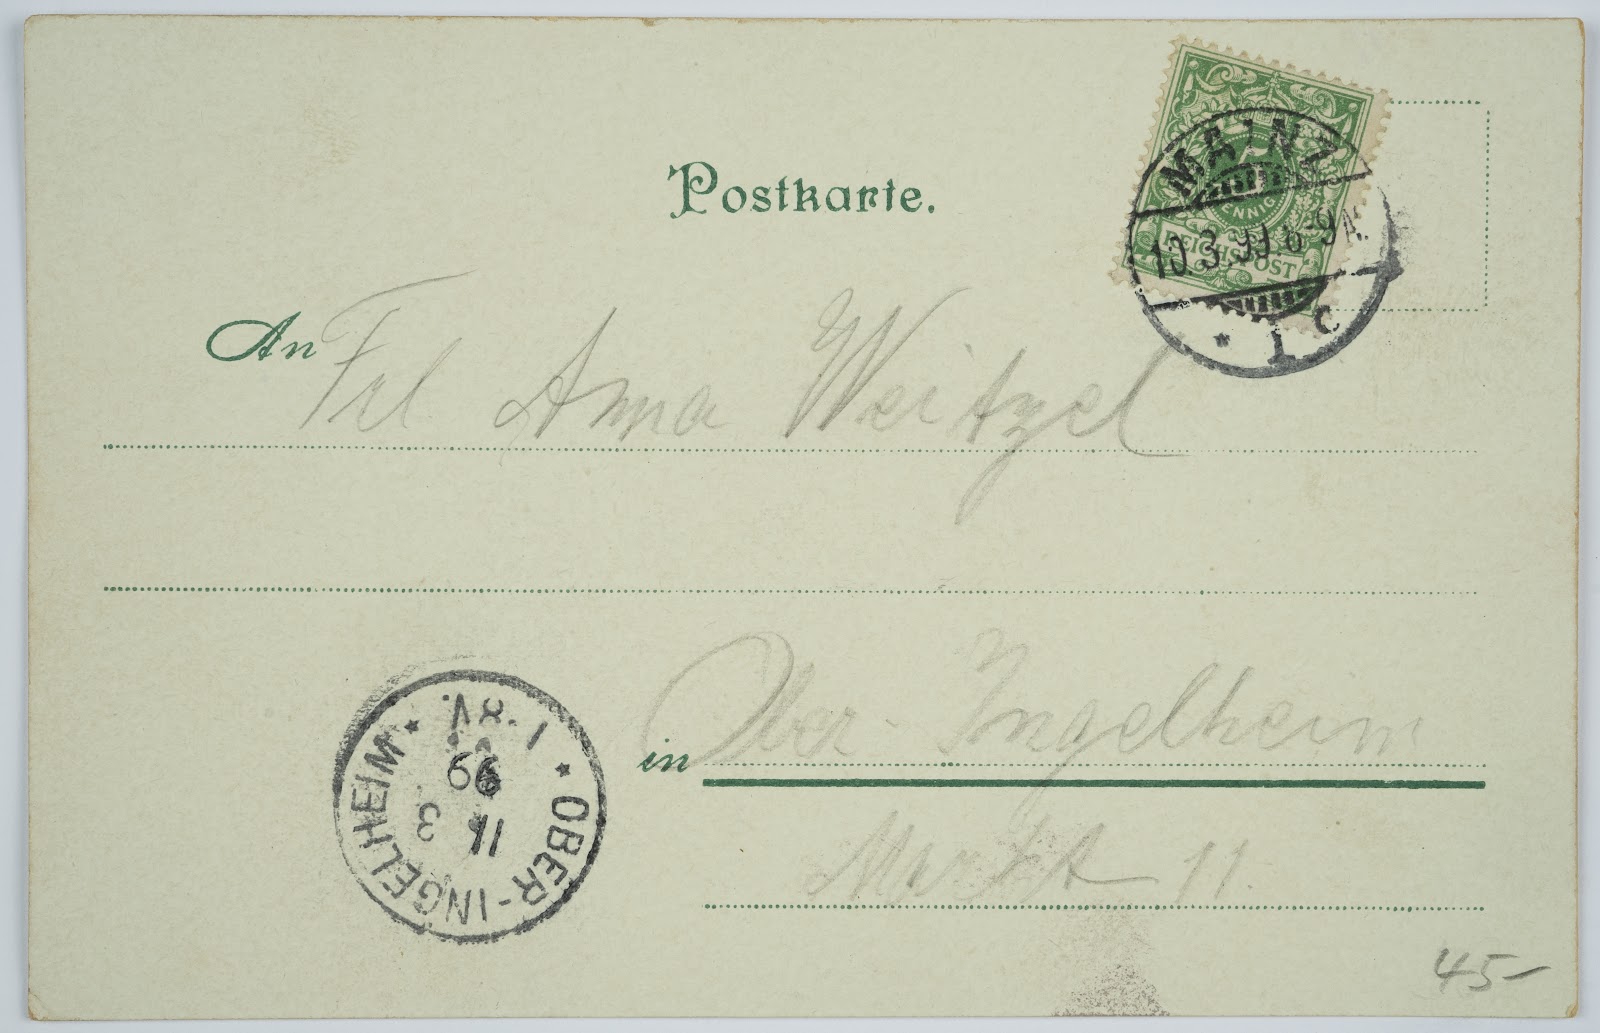 Postkarte.
PFENNIG
REICHSPOST
MAINZ
10.3.99. 8-9N.
* 1 c
An Frl Anna Weitzel
in Ober-Ingelheim
Markt 11.
* OBER-INGELHEIM *
11 3
99
1-8V.
45-